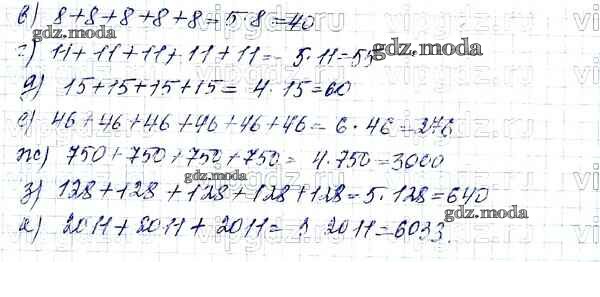 в) 8+8+8+8+8=5·8=40
г) 11+11+11+11+11= 5·11=55
д) 15+15+15+15= 4·15=60
е) 46+46+46+46+46+46= 6·46=276
ж) 750+750+750+750= 4·750=3000
з) 128+128+128+128+128=5·128=640
и) 2011+2011+2011= 3 2011=6033.
gdz.moda
gdz.moda
gdz.moda
gdz.moda
gdz.moda